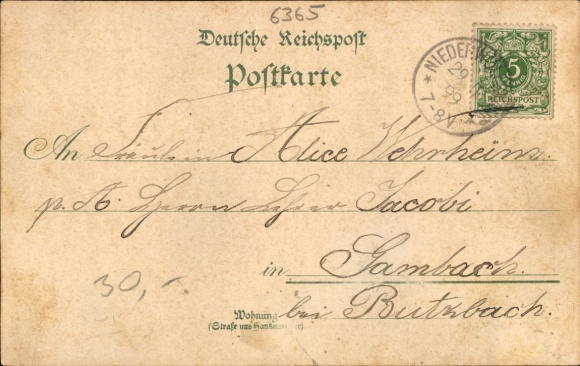 6365
Deutsche Reichspost
Postkarte
NIEDER
29
99
7-8N
5
REICHSPOST
An Fräulein Alice Wehrheim.
p. A. Herrn Lehrer Jacobi
in Gambach.
bei Butzbach.
30,-
Wohnung
(Straße und